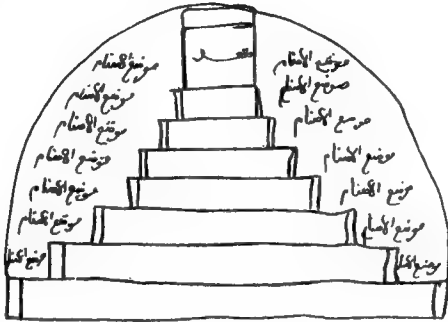 موضع الاصنام
موضع الاصنام
مقعد
موضع الاصنام
موضع الاصنام
موضع الاصنام
موضع الاصنام
موضع الاصنام
موضع الاصنام
موضع الاصنام
موضع الاصنام
موضع الاصنام
موضع الاصنام
موضع
موضع